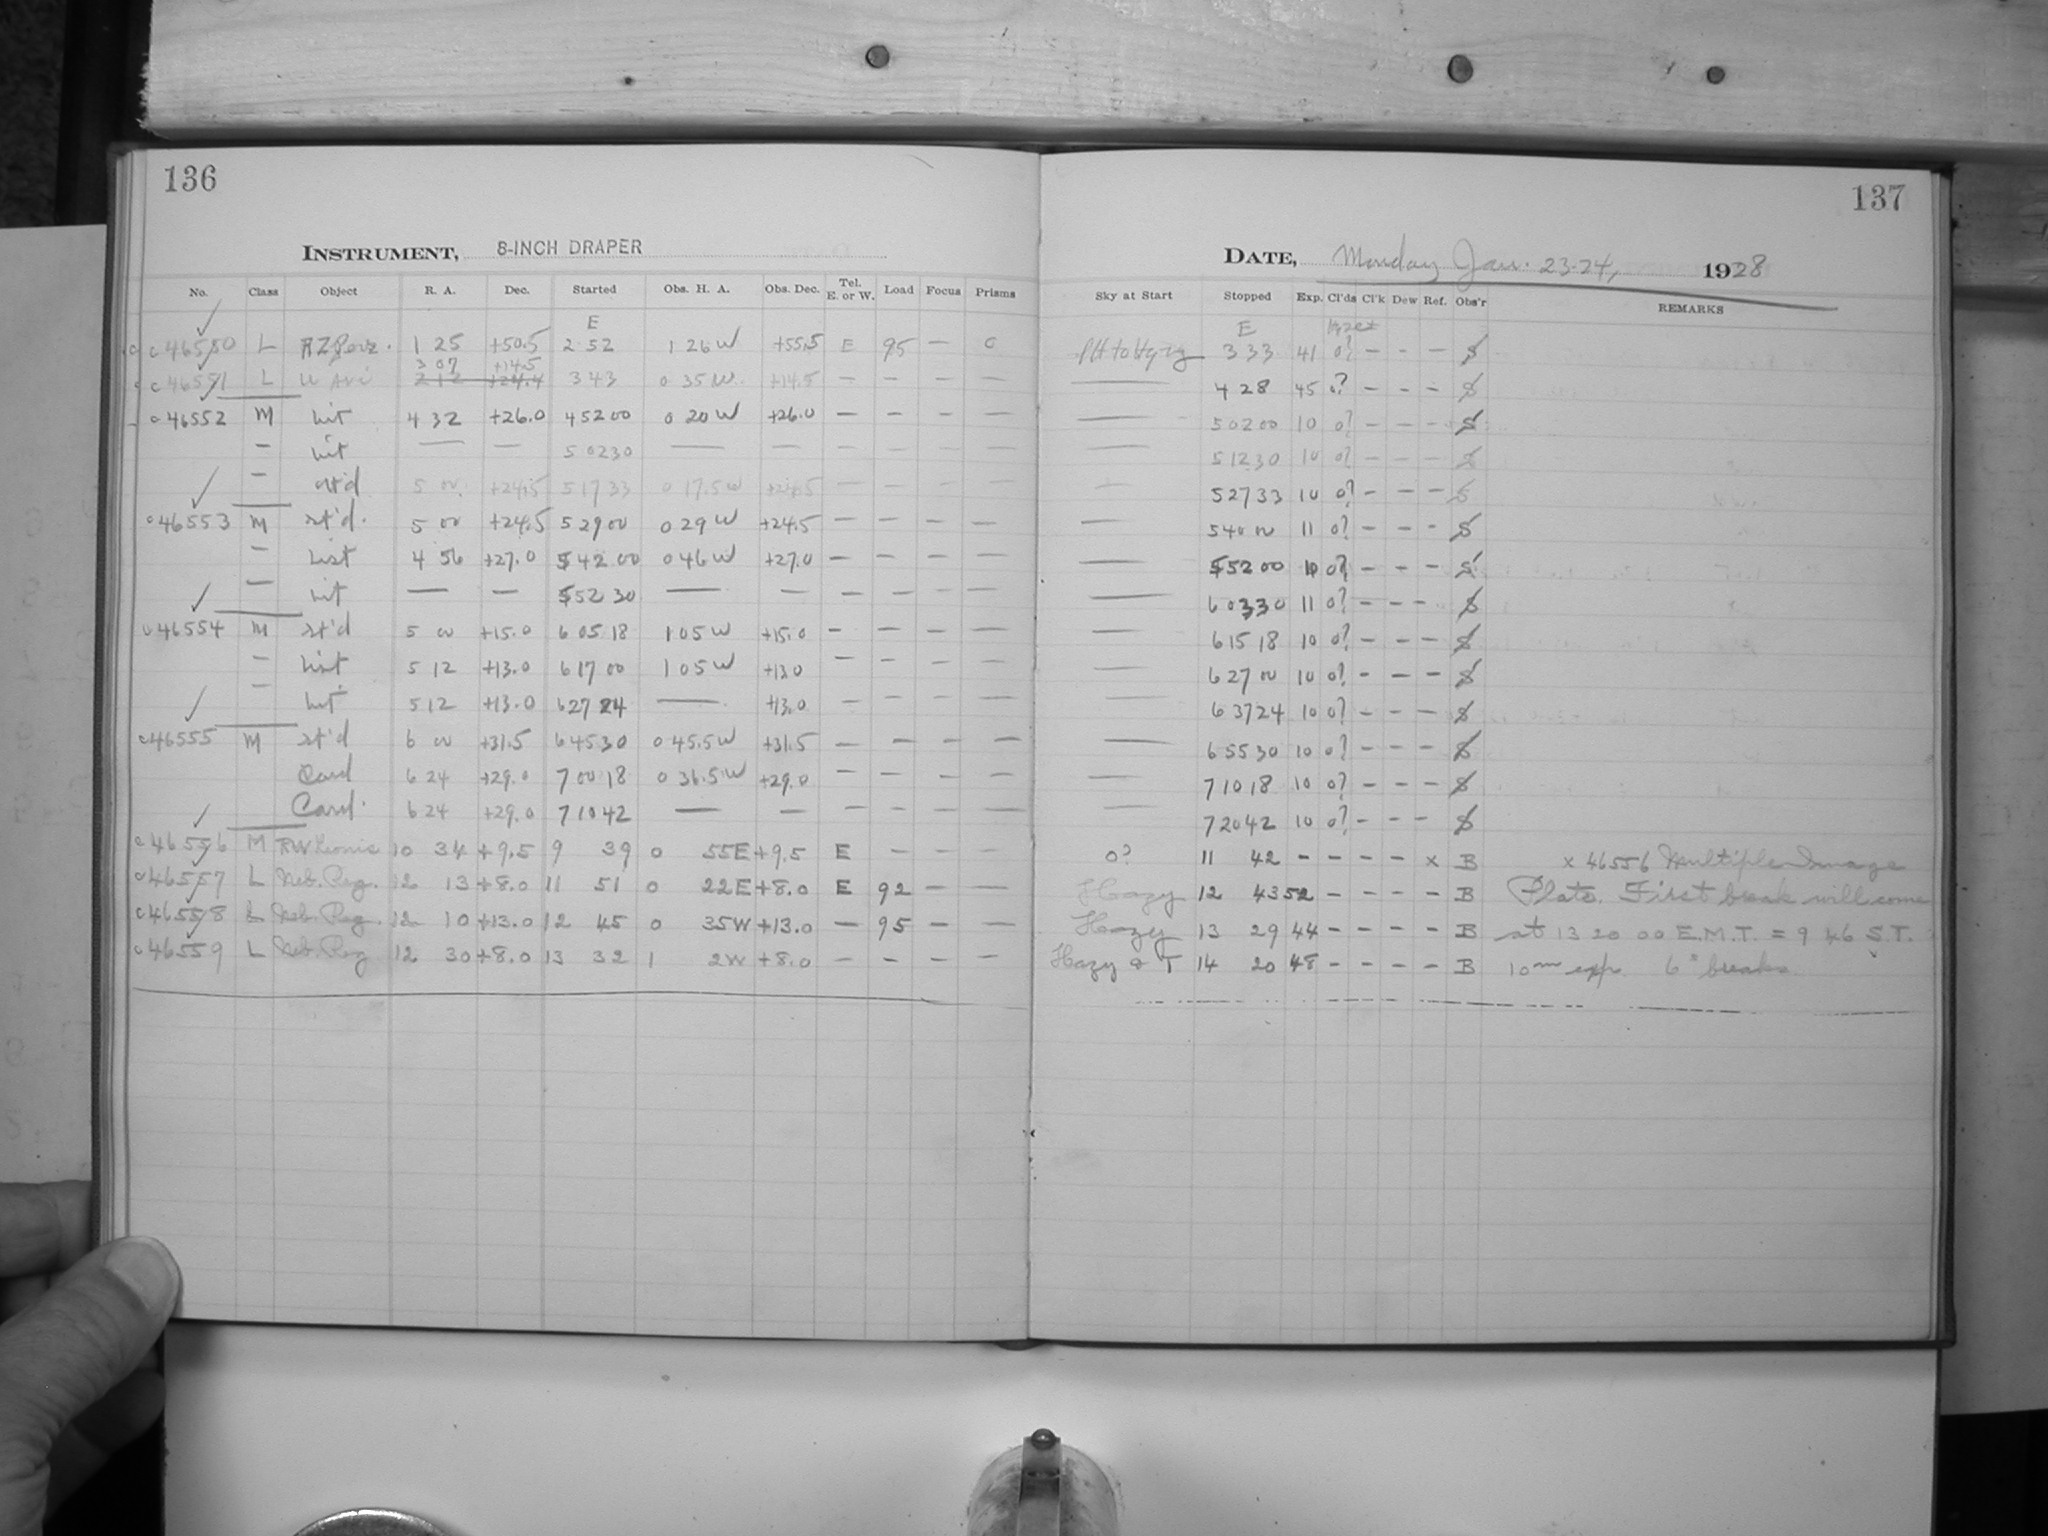 136
INSTRUMENT, 8-INCH DRAPER
No. Class Object R. A. Dec. Started Obs. H. A. Obs. Dec. Tel. E. or W. Load Focus Prisms
E
c 46550 L RZ Pers. 1 25 +50.5 2 52 1 26 W +55.5 E 95 — 0
3 07 +14.5
c 46551 L U Ari 2 12 +24.4 3 43 0 35 W. +14.5 — — — —
c 46552 M hit 4 32 +26.0 4 52 00 0 20 W +26.0 — — — —
— hit — — 5 02 30 — — — — — —
— st'd 5 00 +24.5 5 17 33 0 17.5 W +24.5 — — — —
c 46553 M st'd. 5 00 +24.5 5 29 00 0 29 W +24.5 — — — —
— List 4 56 +27.0 5 42 00 0 46 W +27.0 — — — —
— hit — — 5 52 30 — — — — — —
c 46554 M st'd 5 00 +15.0 6 05 18 1 05 W +15.0 — — — —
— hit 5 12 +13.0 6 17 00 1 05 W +13.0 — — — —
— hit 5 12 +13.0 6 27 24 — +13.0 — — — —
c 46555 M st'd 6 00 +31.5 6 45 30 0 45.5 W +31.5 — — — —
Card 6 24 +29.0 7 00 18 0 36.5 W +29.0 — — — —
Card. 6 24 +29.0 7 10 42 — — — — — —
c 46556 M RW Leonis 10 34 +9.5 9 39 0 55 E +9.5 E — — —
c 46557 L Neb. Reg. 12 13 +8.0 11 51 0 22 E +8.0 E 92 — —
c 46558 L Neb. Reg. 12 10 +13.0 12 45 0 35 W +13.0 — 95 — —
c 46559 L Neb. Reg 12 30 +8.0 13 32 1 2 W +8.0 — — — —
137
DATE, Monday Jan. 23-24, 1928
Sky at Start Stopped Exp. Cl'ds Cl'k Dew Ref. Obs'r REMARKS
E
3 33 41 0? — — — S
— 4 28 45 0? — — — S
— 5 02 00 10 0? — — — S
— 5 12 30 10 0? — — — S
— 5 27 33 10 0? — — — S
— 5 40 00 11 0? — — — S
— 5 52 00 10 0? — — — S
— 6 03 30 11 0? — — — S
— 6 15 18 10 0? — — — S
— 6 27 00 10 0? — — — S
— 6 37 24 10 0? — — — S
— 6 55 30 10 0? — — — S
— 7 10 18 10 0? — — — S
— 7 20 42 10 0? — — — S
0? 11 42 — — — — x B x 46556 Multiple Image
Hazy 12 43 52 — — — — B Plate. First break will come
Hazy 13 29 44 — — — — B at 13 20 00 E.M.T. = 9 46 S.T.
Hazy & T 14 20 48 — — — — B 10m exp. 6s breaks